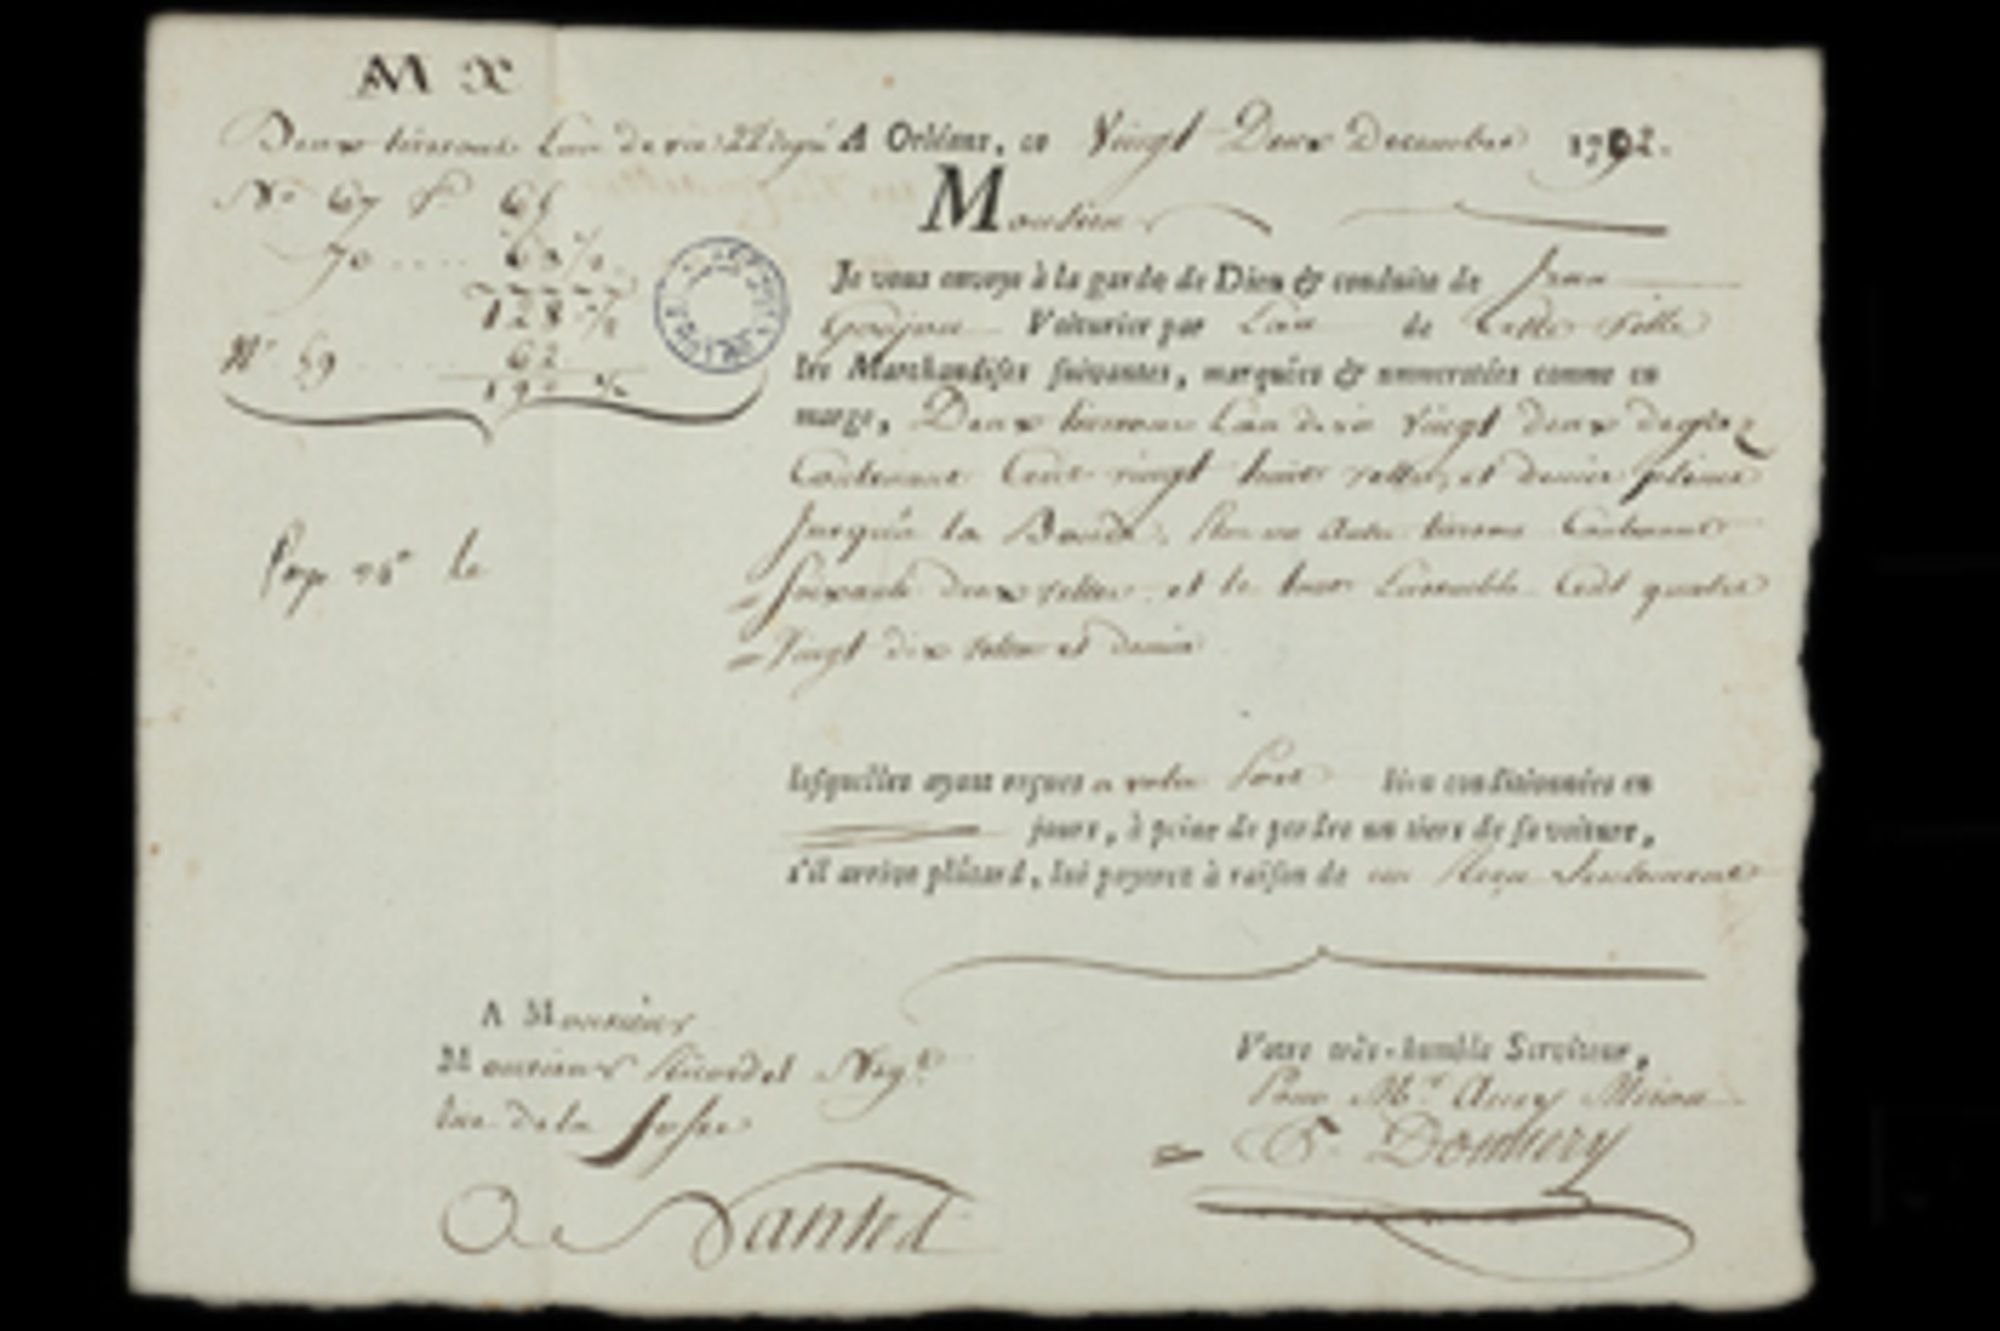 M X
Deux tierçons Eau de vie 22 degrés
A Orléans, ce Vingt Deux Decembre 1792.
No 67 P 65
70 .... 63 ½
128 ½
No 59 .... 62
190 ½
Monsieur
Je vous envoye à la garde de Dieu & conduite de Jean
Goujou Voiturier par Eau de Cette Ville
les Marchandises suivantes, marquées & numerotées comme en
marge, Deux tierçons Eau de vie Vingt deux degrés
Contenant Cent vingt huit veltes, et demie pleine
Jusqu'a la Bonde, Plus un autre tierçons Contenant
Soixante deux veltes et le tout Ensemble Cent quatre
Vingt dix veltes et demie
Paye 26 le
lesquelles ayant reçues a votre Port bien conditionnées en
jours, à peine de perdre un tiers de sa voiture,
s'il arrive plûtard, lui payerez à raison de un Seulement
A Monsieur
Monsieur Ricordel Negt
Rue de la
A Nantes
Votre très-humble Serviteur,
Pour Mr Miron